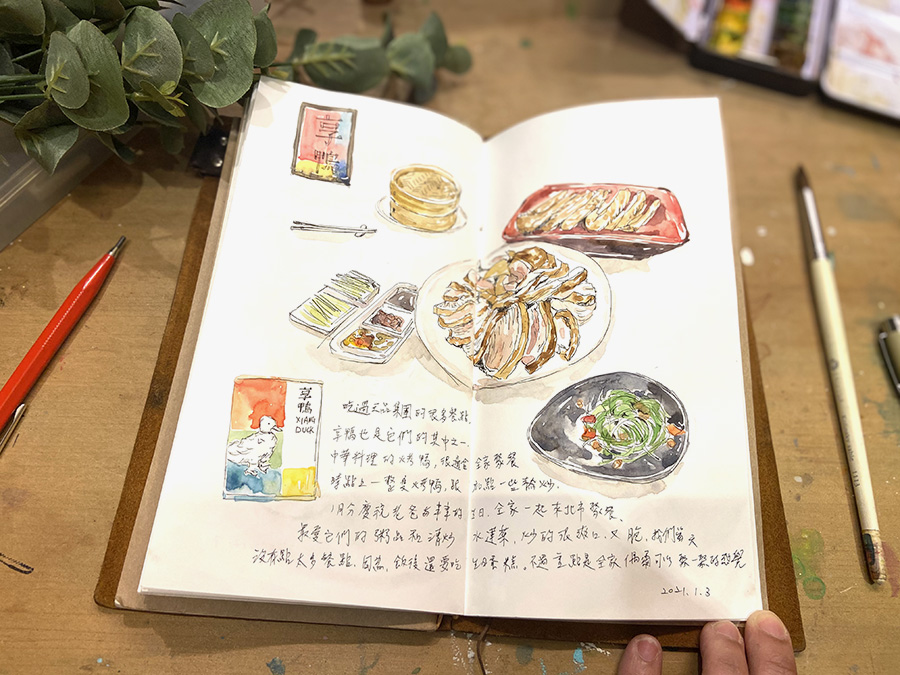 享
鴨
享
鴨
XIANG
DUCK
吃過王品集團的很多餐點,
享鴨也是它們的其中之一。
中華料理的烤鴨,很適合全家聚餐
時點上一整隻烤鴨,跟加點一些熱炒。
1月份慶祝老爸的生日,全家一起來北市聚餐。
最愛它們的粥品和清炒水蓮菜,炒的很爽口又脆,我們當天
沒有點太多餐點,因為飯後還要吃生日蛋糕。不過重點是全家偶爾可以聚一聚的感覺
2021.1.3